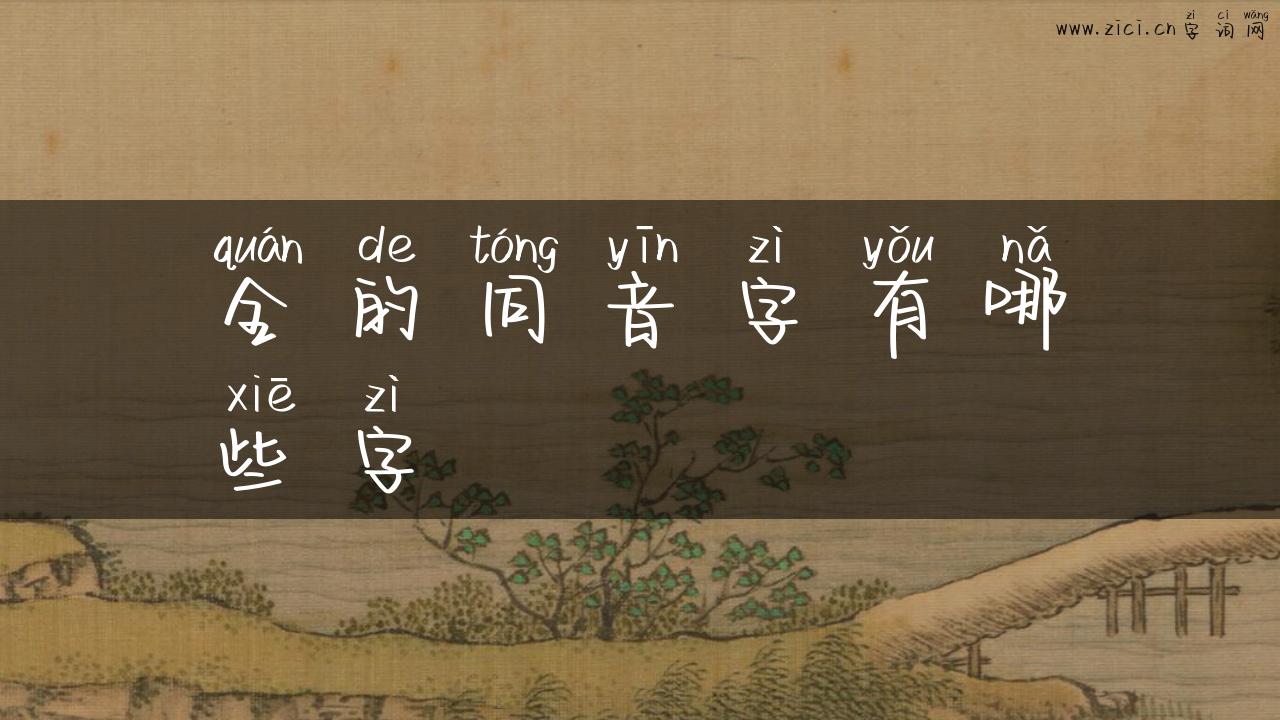 zì cí wǎng
www.zici.cn 字 词 网
quán de tóng yīn zì yǒu nǎ
全 的 同 音 字 有 哪
xiē zì
些 字